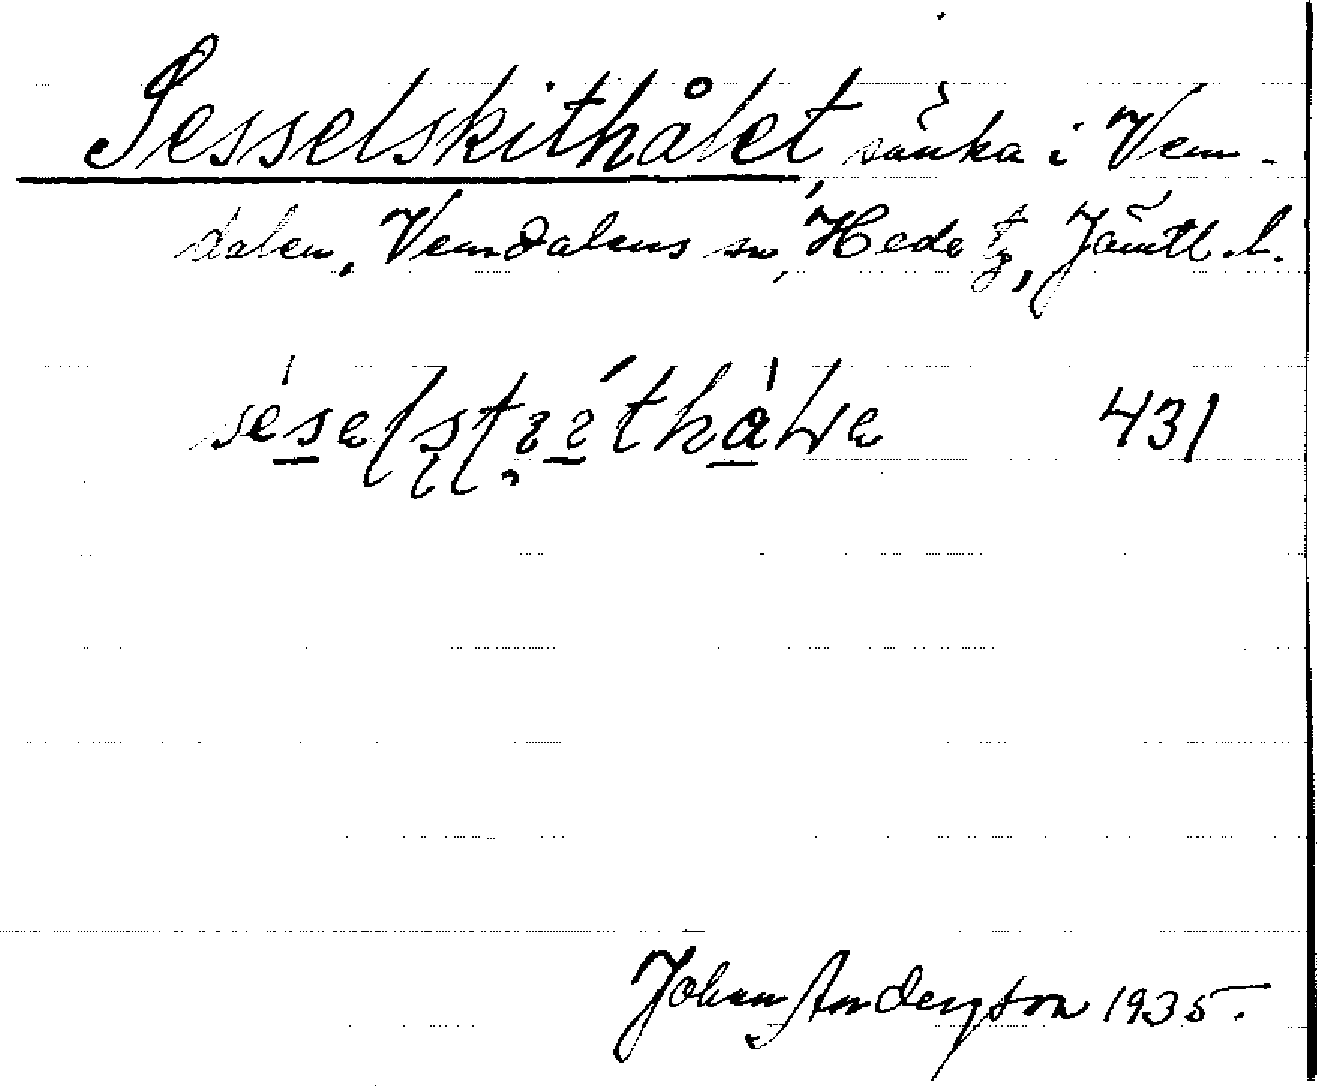 Sesselskithålet, sänka i Vem-
dalen, Vemdalens sn, Hede tg, Jämtl. l.
431
Johan Andersson 1935.